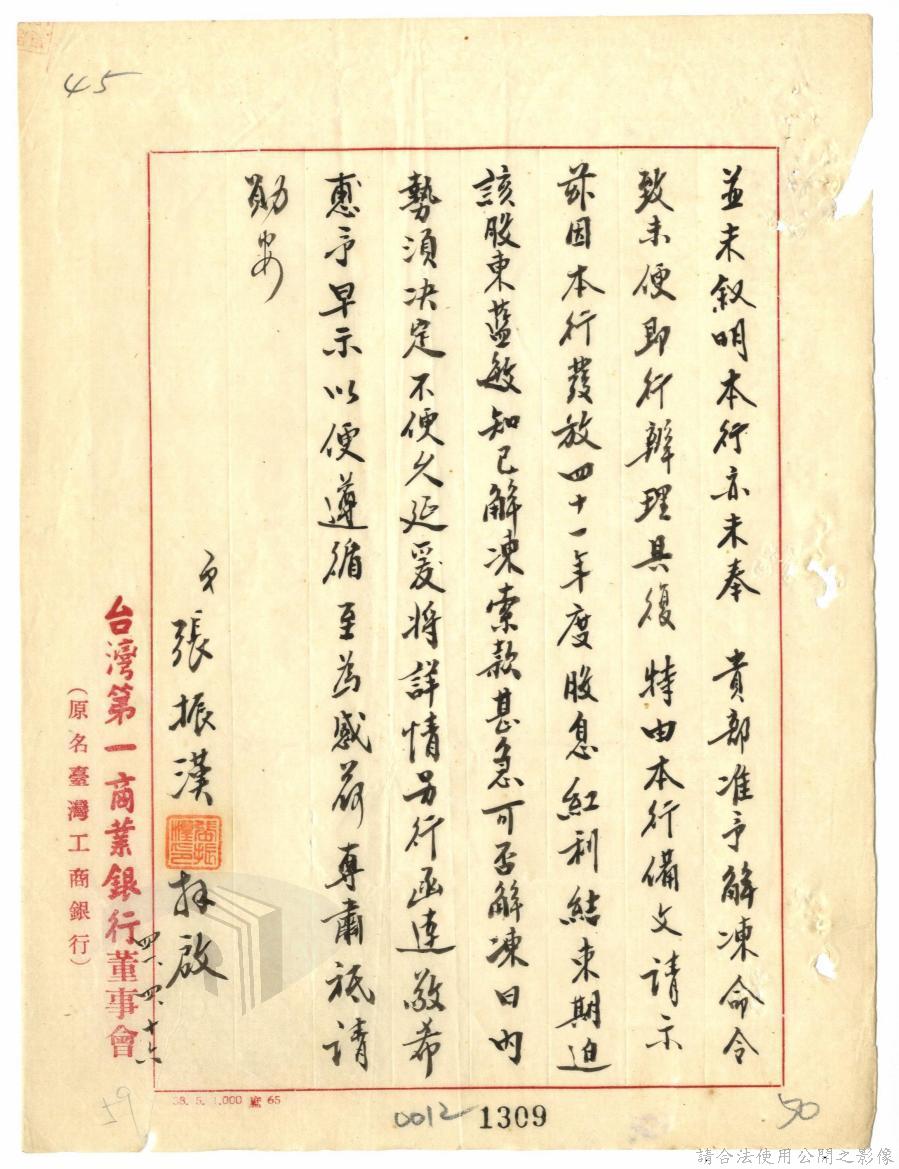 45
並未敘明本行亦未奉 貴部准予解凍命令
致未便即行辦理具復 特由本行備文請示
茲因本行發放四十一年度股息紅利結束期迫
該股東藍敏知已解凍索款甚急可否解凍日內
勢須決定不便久延爰將詳情另行函達敬希
惠予早示以便遵循至為感荷專肅祗請
勛安
弟張振漢 拜啟
台灣第一商業銀行董事會
(原名臺灣工商銀行)
四、十六
38. 5. 1.000 65
59
0012
1309
50
請合法使用公開之影像